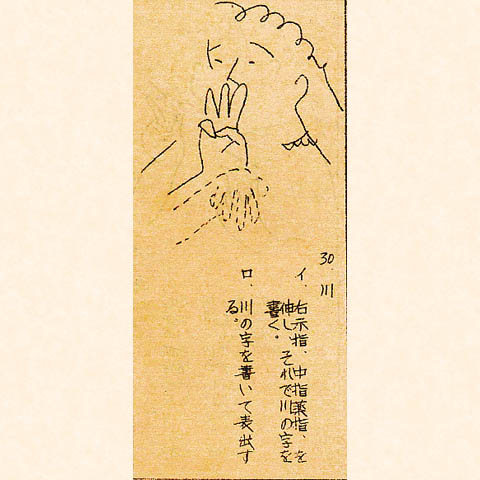 30. 川
イ、右示指、中指薬指、を
伸し、それで川の字を
書く。
ロ、川の字を書いて表出す
る。